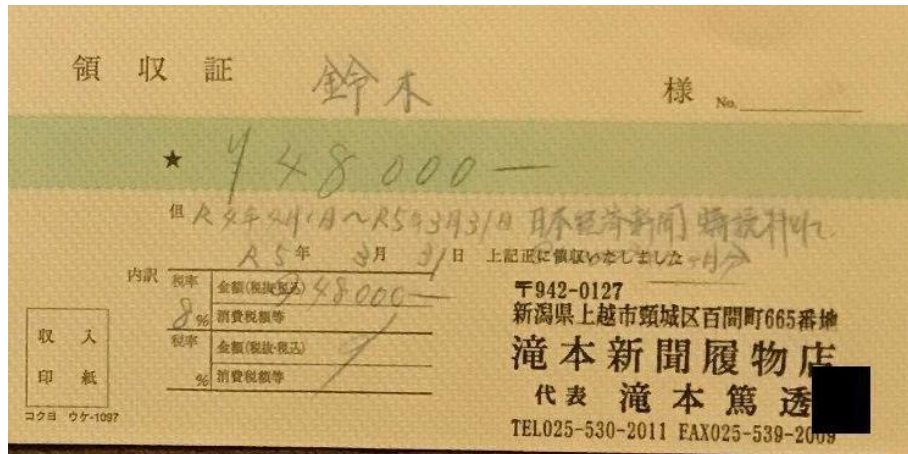 領収証 鈴木 様 No.
★ ¥48000—
但 R4年4月1日～R5年3月31日 日本経済新聞 購読料
R5年 3月 31日 上記正に領収いたしました
内訳 税率 8% 金額(税抜・税込) 48000—
消費税額等
税率 % 金額(税抜・税込)
消費税額等
収入
印紙
コクヨ ウケ-1097
〒942-0127
新潟県上越市頸城区百間町665番地
滝本新聞履物店
代表 滝本篤透
TEL025-530-2011 FAX025-539-2009